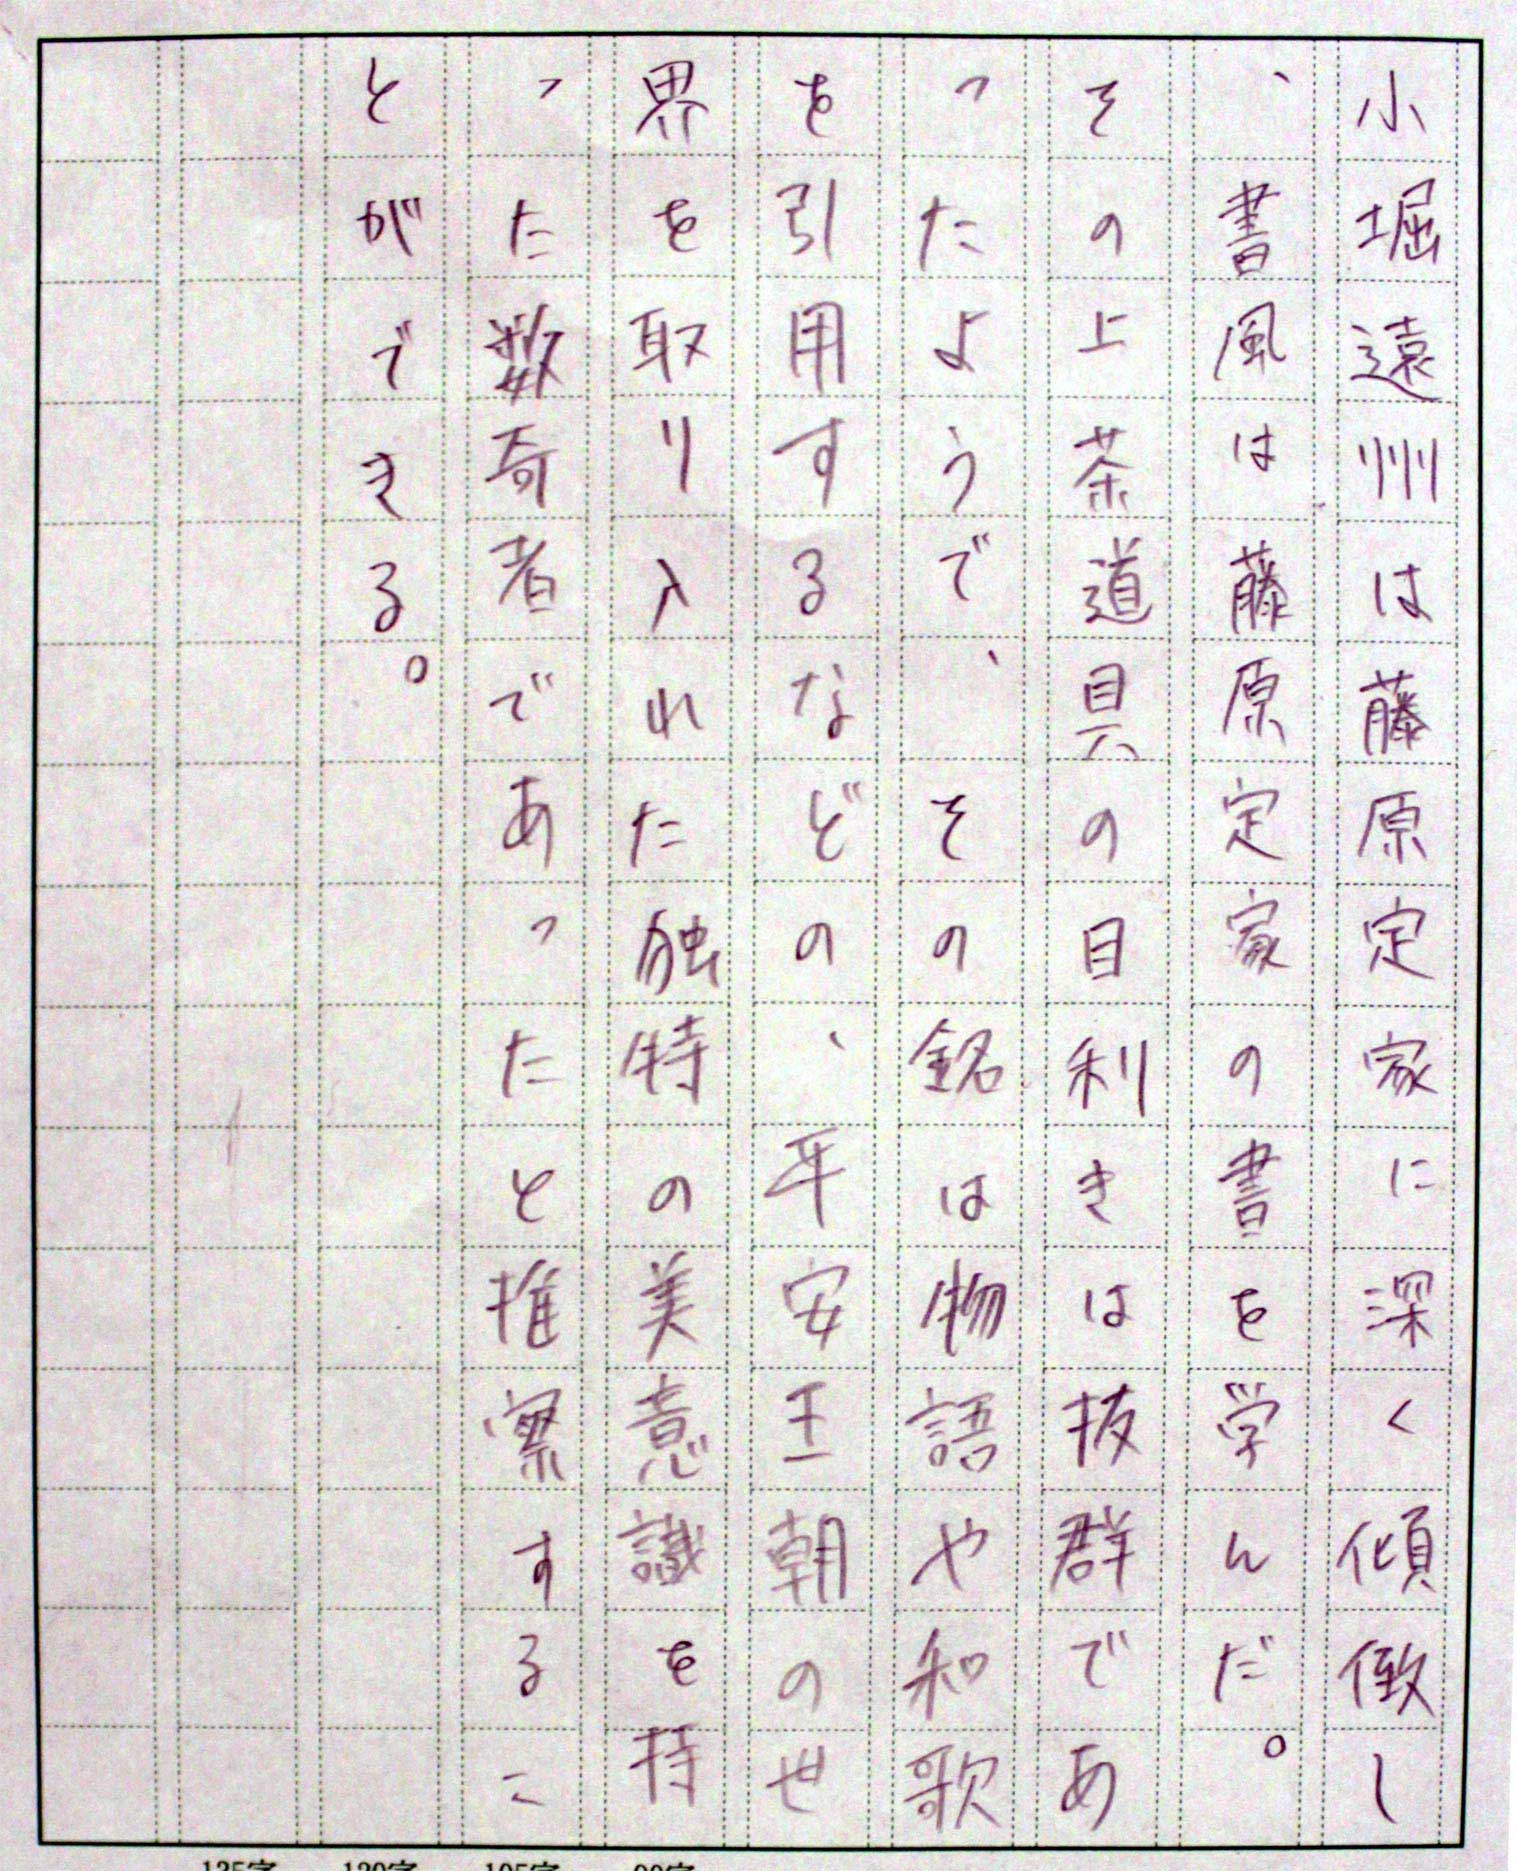 小堀遠州は藤原定家に深く傾倒し
、書風は藤原定家の書を学んだ。
その上茶道具の目利きは抜群であ
ったようで、その銘は物語や和歌
を引用するなどの、平安王朝の世
界を取り入れた独特の美意識を持
った数奇者であったと推察するこ
とができる。